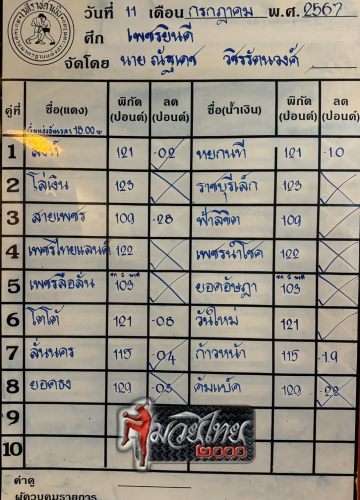 วันที่ 11 เดือน กรกฎาคม พ.ศ. 2567
ศึก เพชรยินดี
จัดโดย นาย ณัฐเดช วชิรรัตนวงศ์
คู่ที่ ชื่อ(แดง) พิกัด (ปอนด์) ลด (ปอนด์) ชื่อ(น้ำเงิน) พิกัด (ปอนด์) ลด (ปอนด์)
1 121 -0.2 หยกนที 121 -1.0
2 โล่เงิน 123 ราชบุรีเล็ก 123
3 สายเพชร 109 -2.8 ฟ้าลิขิต 109
4 เพชรไทยแลนด์ 122 เพชรนำโชค 122
5 เพชรลือลั่น 103 ยอดอัษฎา 103
6 โตโต้ 121 -0.8 วันใหม่ 121
7 ลั่นนคร 115 -0.4 ก้าวหน้า 115 -1.9
8 ยอดธง 129 -0.3 คัมแบ็ค 129 -2.2
9
10
มวยไทย
๒๐๐๐
ค่าดู
ผู้ควบคุมรายการ